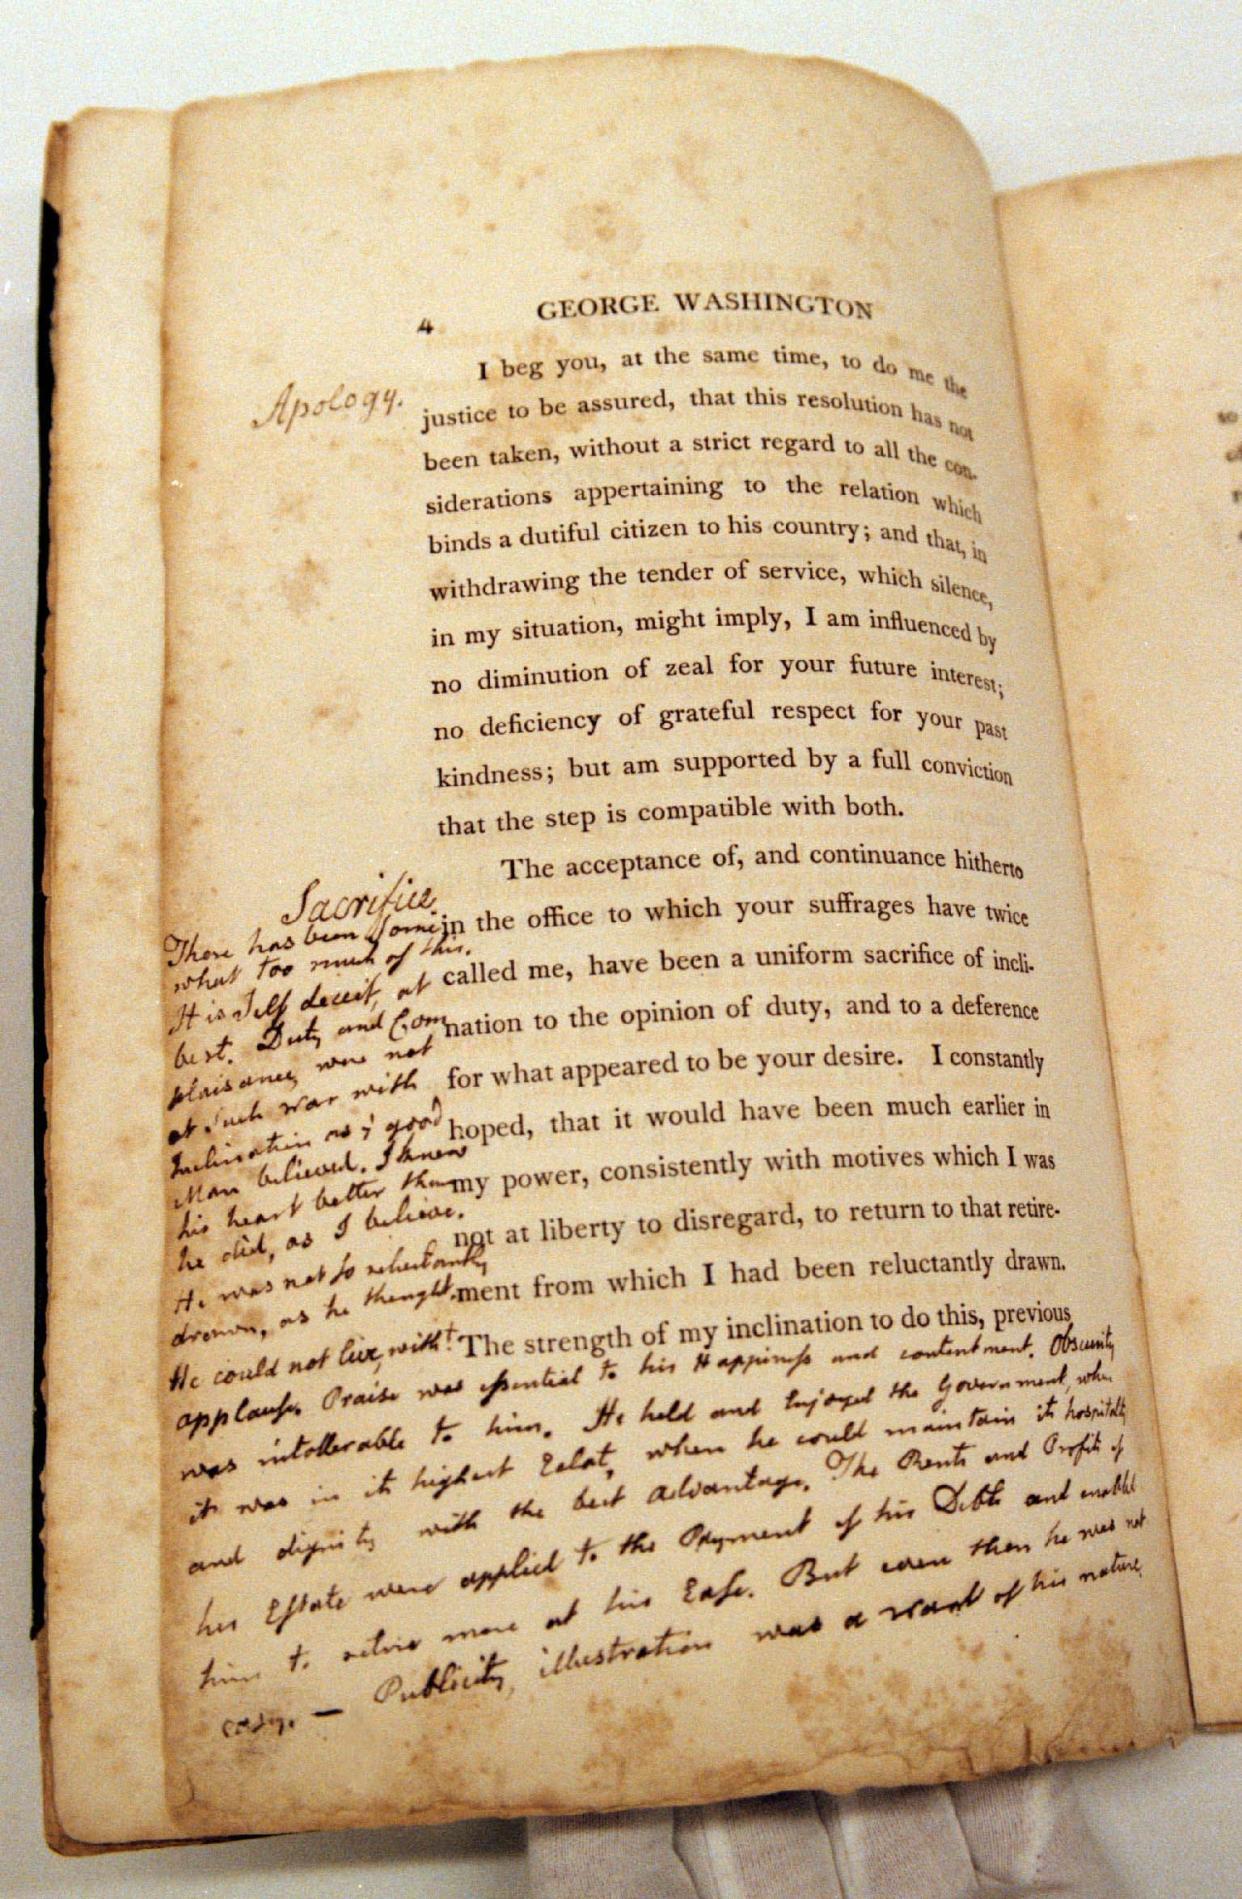 4 GEORGE WASHINGTON
I beg you, at the same time, to do me the
Apology.
justice to be assured, that this resolution has not
been taken, without a strict regard to all the con-
siderations appertaining to the relation which
binds a dutiful citizen to his country; and that, in
withdrawing the tender of service, which silence,
in my situation, might imply, I am influenced by
no diminution of zeal for your future interest;
no deficiency of grateful respect for your past
kindness; but am supported by a full conviction
that the step is compatible with both.
The acceptance of, and continuance hitherto
in the office to which your suffrages have twice
called me, have been a uniform sacrifice of incli-
nation to the opinion of duty, and to a deference
for what appeared to be your desire. I constantly
hoped, that it would have been much earlier in
my power, consistently with motives which I was
not at liberty to disregard, to return to that retire-
ment from which I had been reluctantly drawn.
The strength of my inclination to do this, previous
Sacrifice.
There has been Some
what too much of this.
It is Self deceit, at
best. Duty and Com
plaisance, were not
at Such war with
Inclination as ye good
Man believed. I knew
his heart better than
he did, as I believe.
He was not so reluctantly
drawn, as he thought.
He could not live, witht
applause. Praise was essential to his Happiness and contentment. Obscurity
was intollerable to him. He held and Enjoyed the Government, when
it was in its highest Eclat, when he could maintain its hospitality
and dignity with the best advantage. The Rents and Profits of
his Estate were applied to the Payment of his Debts and enabled
him to retire more at his Ease. But even then he was not
easy. — Publicity, illustration was a want of his nature.